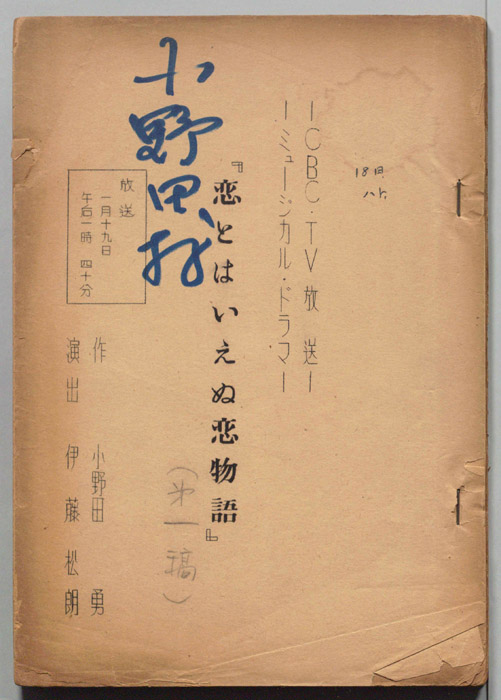 18日
ハト
ーCBC・TV放送ー
ーミュージカル・ドラマー
『恋とはいえぬ恋物語』
(第一稿)
小野田
放送
一月十九日
午后一時 四十分
作 小野田 勇
演出 伊藤松朗